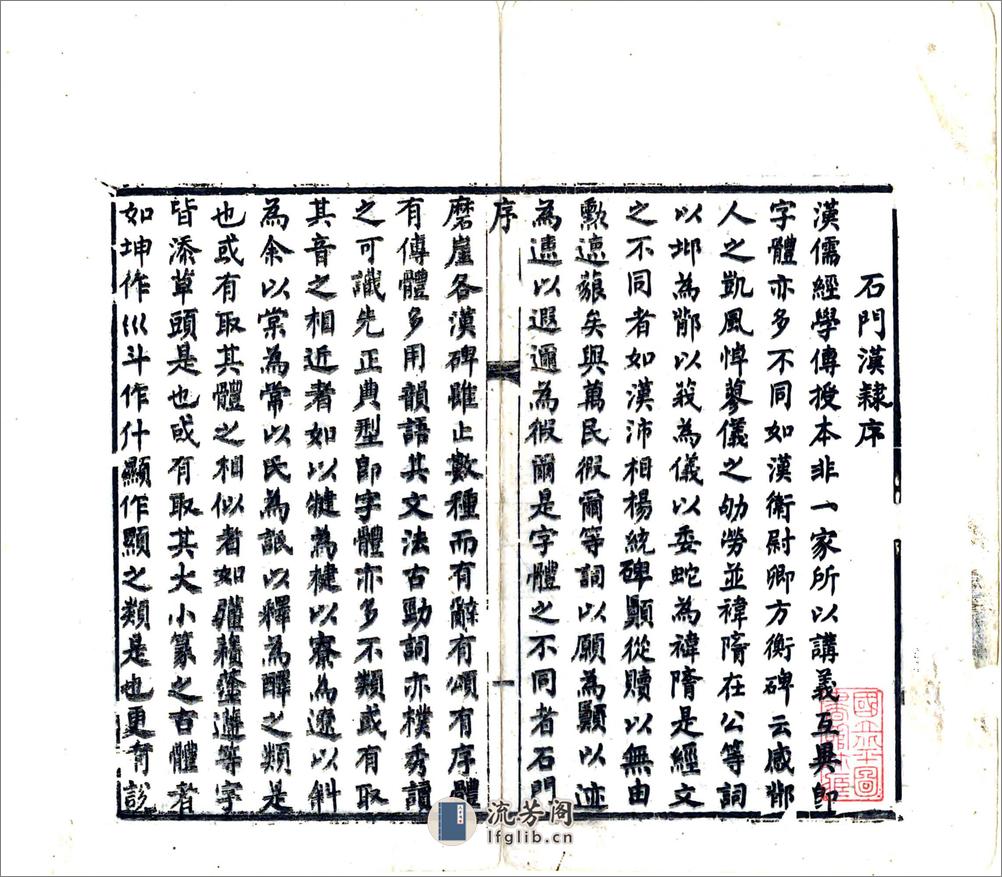 石門漢隸序
漢儒經學傳授本非一家所以講義互異即
字體亦多不同如漢衛尉卿方衡碑云感鄁
人之凱風悼蓼儀之劬勞並褘隋在公等詞
以邶為鄁以莪為儀以委蛇為褘隋是經文
之不同者如漢沛相楊統碑顯從贖以無由
勳遠藐矣與萬民徦爾等詞以願為顯以迹
為遠以遐邇為徦爾是字體之不同者石門
序
磨崖各漢碑雖止數種而有辭有頌有序體
有傳體多用韻語其文法古勁詞亦樸秀讀
之可識先正典型即字體亦多不類或有取
其音之相近者如以犍為楗以寮為遼以斜
為余以棠為常以民為詆以釋為醳之類是
也或有取其體之相似者如等字
皆添草頭是也或有取其大小篆之古體者
如坤作巛斗作什顯作顕之類是也更有説
國立北平圖
書館收藏
流芳阁
lfglib.cn